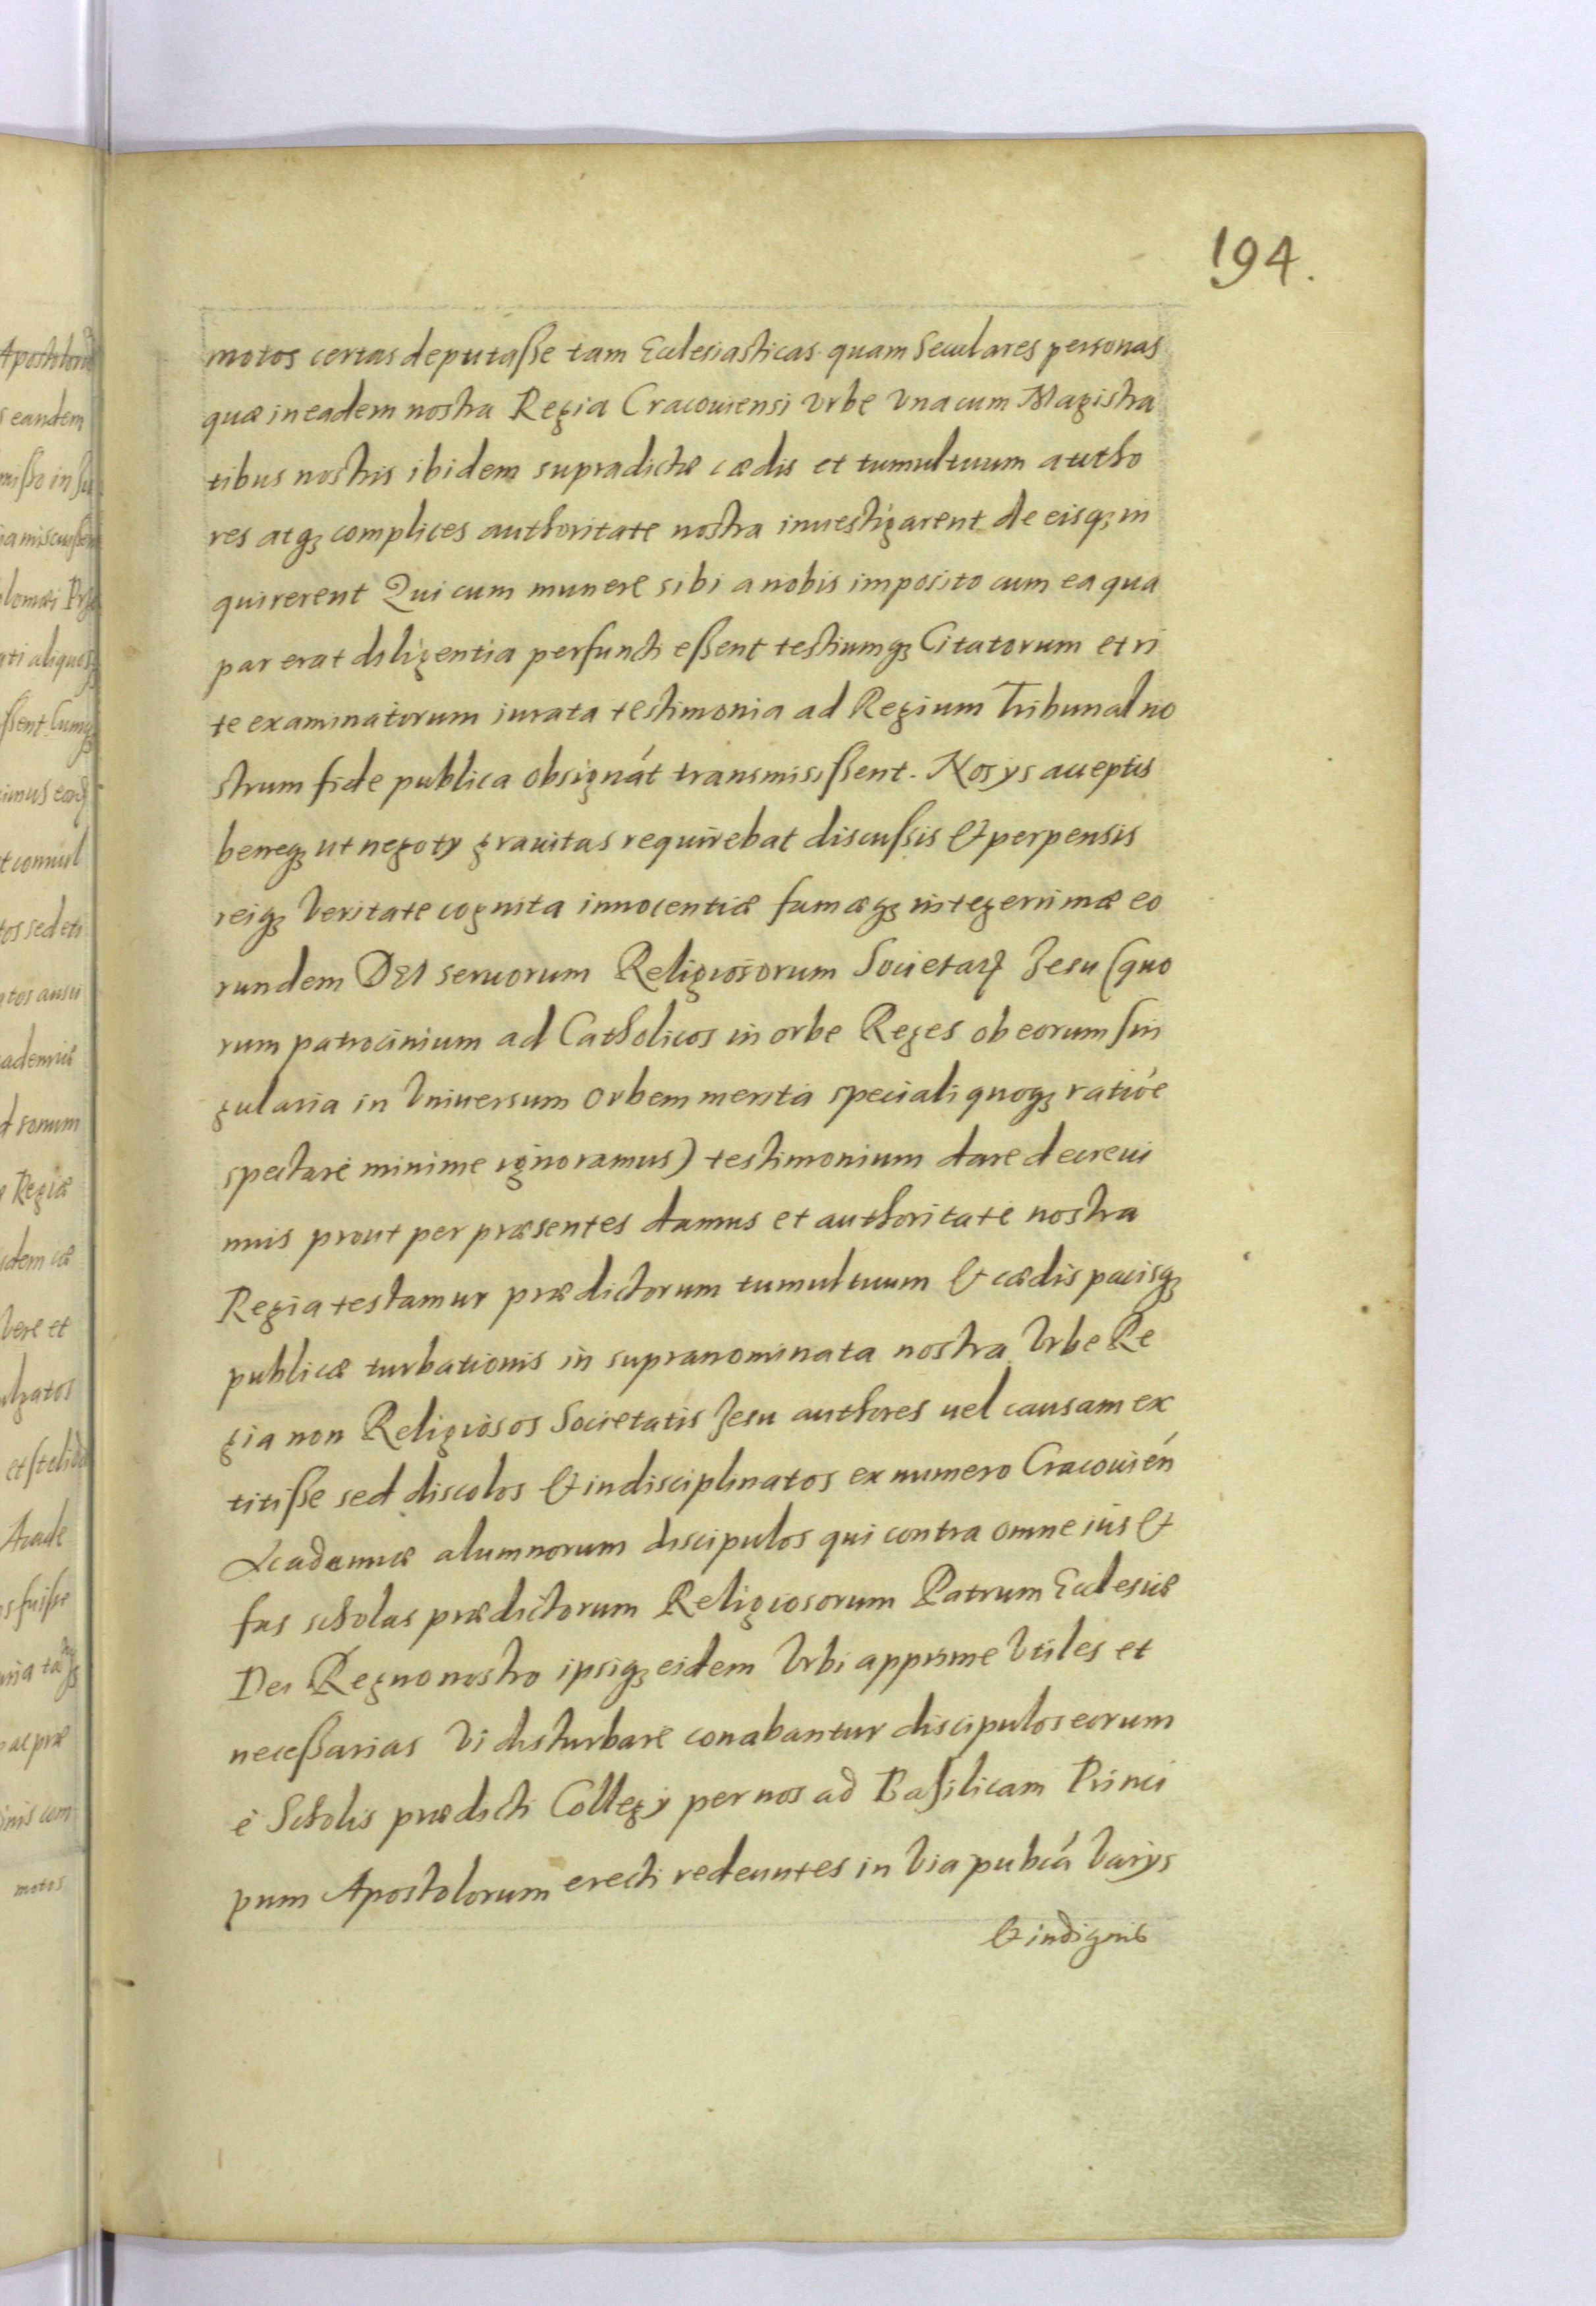 194.
motos certas deputaſse tam Ecclesiasticas quam Seculares personas
quæ in eadem nostra Regia Cracouiensi Vrbe Vna cum Magistra
tibus nostris ibidem supradictæ cædis et tumultuum autho
res atqȝ complices authoritate nostra inuestigarent de eisqȝ in
quirerent Qui cum munere sibi a nobis imposito cum ea qua
par erat diligentia perfuncti eſsent testiumqȝ Citatorum et ri
te examinatorum iurata testimonia ad Regium Tribunal no
strum fide publica obsignát transmisiſsent. Nos ys acceptis
beneqȝ ut negoty grauitas requirebat discuſsis & perpensis
reiqȝ Veritate cognita innocentiæ famæqȝ integerrimæ eo
rundem DEI seruorum Religiosorum Societatꝭ Jesu (quo
rum patrocinium ad Catholicos in orbe Reges ob eorum ſin
gularia in Vniuersum Orbem merita speciali quoqȝ ratióe
spectare minime ignoramus) testimonium dare decreui
mus prout per præsentes damus et authoritate nostra
Regia testamur prædictorum tumultuum & cædis pacisqȝ
publicæ turbationis in supranominata nostra Vrbe Re
gia non Religiosos Societatis Jesu authores uel causam ex
titiſse sed discolos & indisciplinatos ex numero Cracouién
Academiæ alumnorum discipulos qui contra omne ius &
fas scholas prædictorum Religiosorum Patrum Ecclesiæ
Dei Regno nostro ipsiqȝ eidem Vrbi apprime Vtiles et
neceſsarias Vi disturbare conabantur discipulos eorum
é Scholis prædicti Collegy per nos ad Baſilicam Princi
pum Apostolorum erecti redeuntes in Via pubcá Varys
& indignis
Apostolorū
eandem
Regiæ
Vere et
Acade
motos